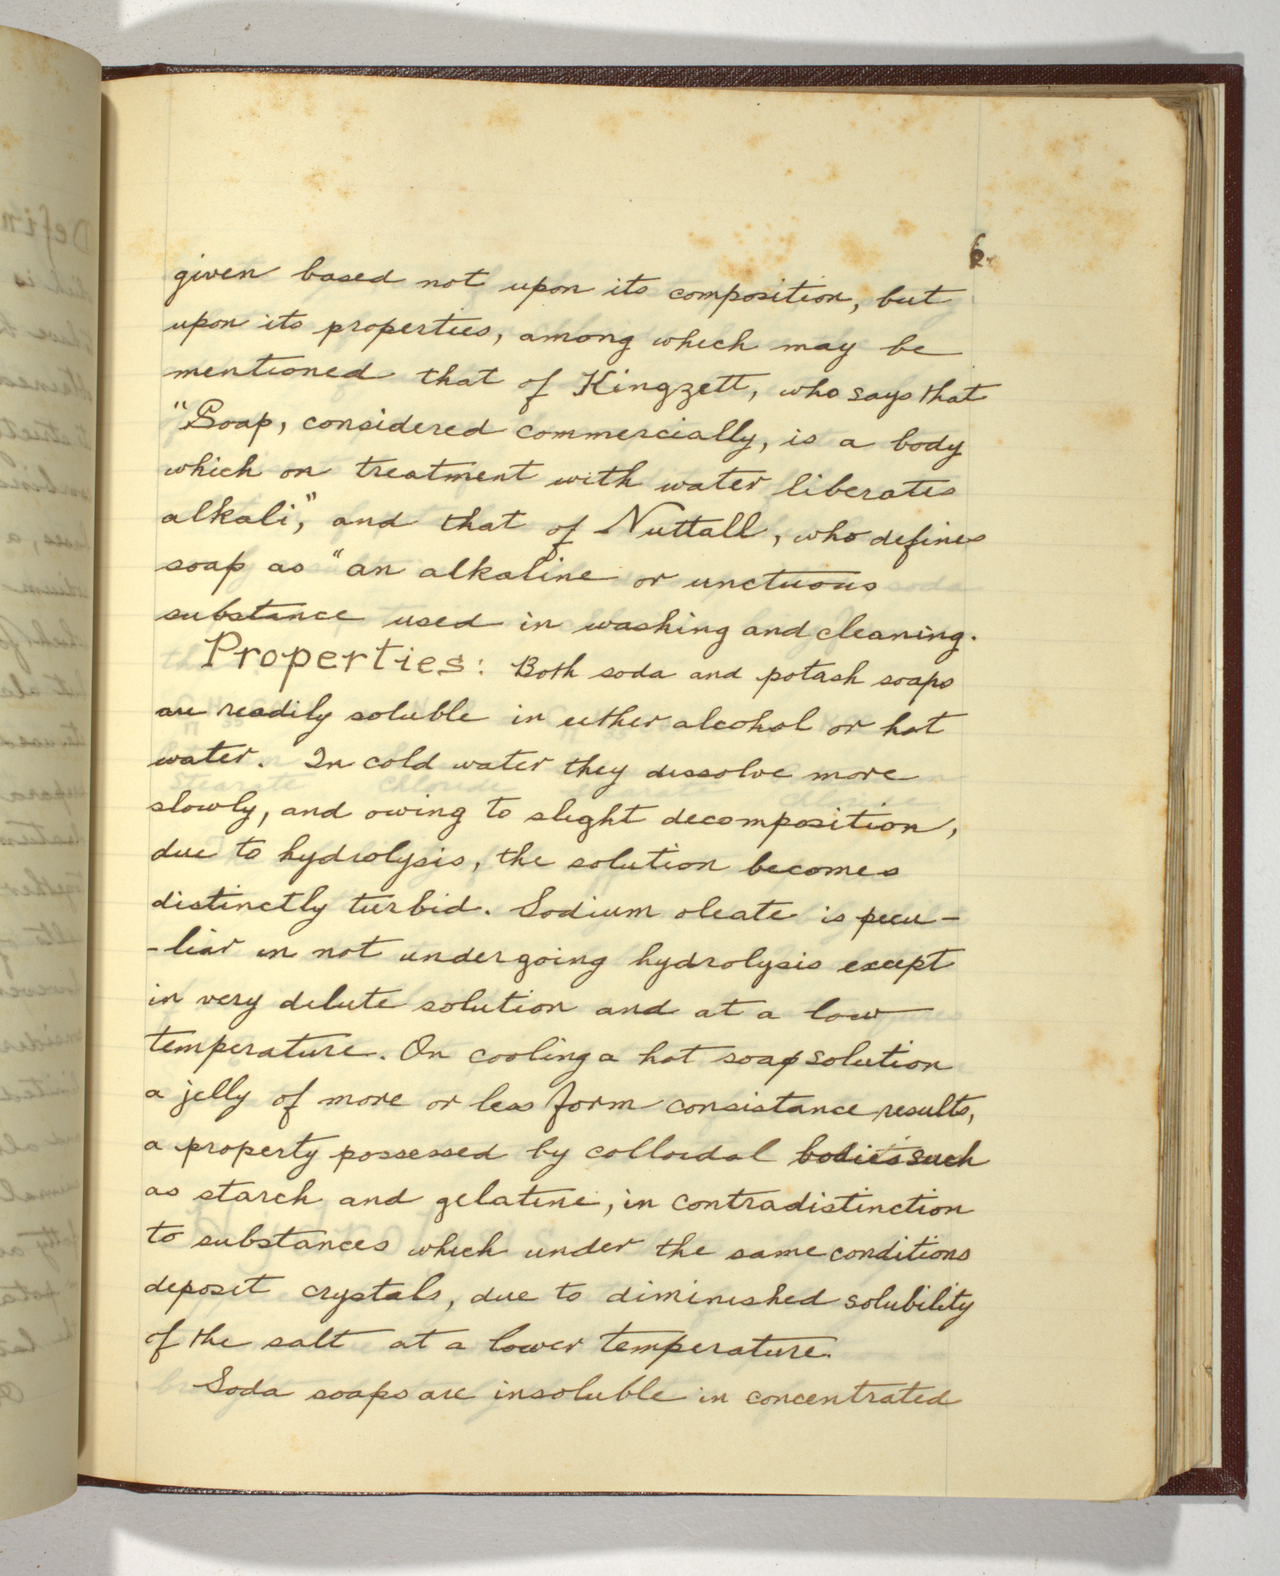 6.
given based not upon its composition, but
upon its properties, among which may be
mentioned that of Kingzett, who says that
"Soap, considered commercially, is a body
which on treatment with water liberates
alkali," and that of Nuttall, who defines
soap as "an alkaline or unctuous
substance used in washing and cleaning.
Properties: Both soda and potash soaps
are readily soluble in either alcohol or hot
water. In cold water they dissolve more
slowly, and owing to slight decomposition,
due to hydrolysis, the solution becomes
distinctly turbid. Sodium oleate is pecu-
-liar in not undergoing hydrolysis except
in very dilute solution and at a low
temperature. On cooling a hot soap solution
a jelly of more or less form consistance results,
a property possessed by colloidal bodies such
as starch and gelatine, in contradistinction
to substances which under the same conditions
deposit crystals, due to diminished solubility
of the salt at a lower temperature.
Soda soaps are insoluble in concentrated